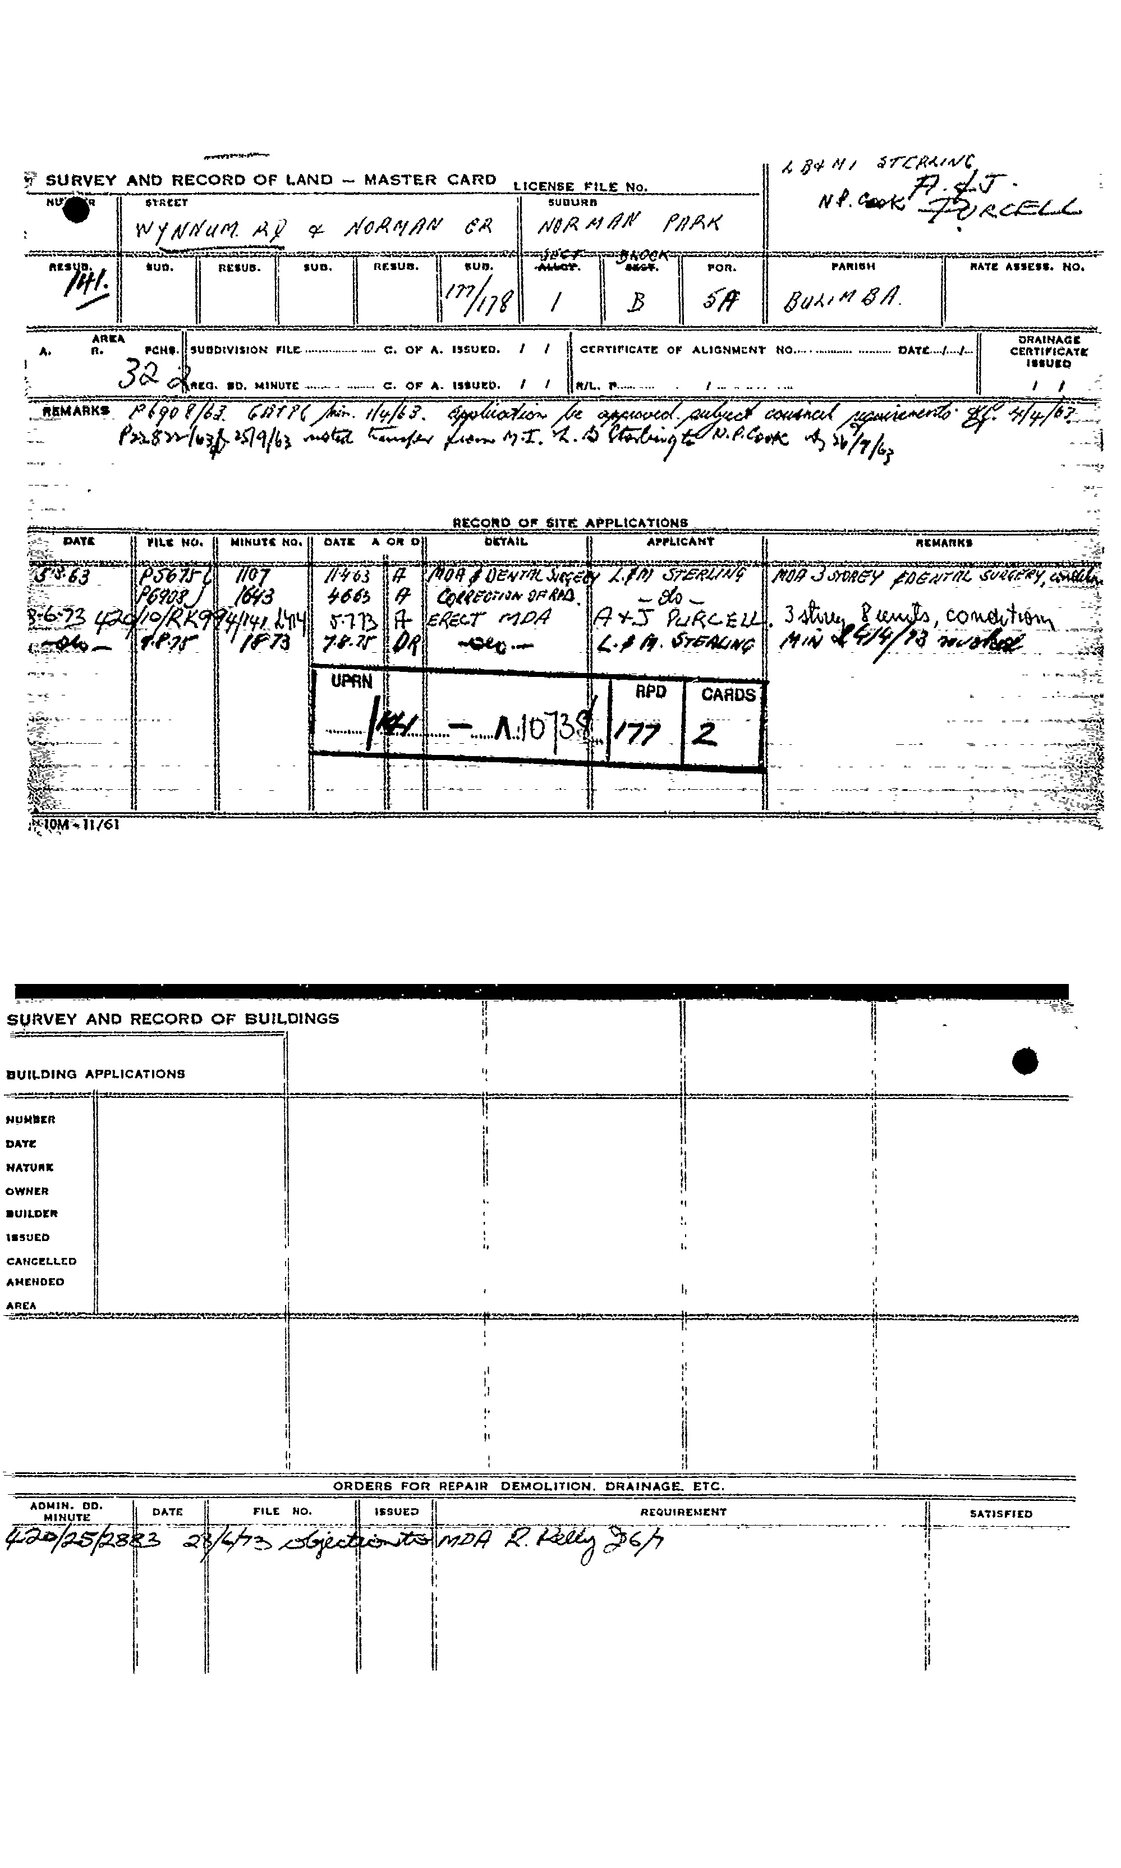 L B & M I STERLING
SURVEY AND RECORD OF LAND — MASTER CARD LICENSE FILE No.
N.P. Cook A. & J. PURCELL
STREET SUBURB
WYNNUM RD & NORMAN NORMAN PARK
RESUB. SUB. RESUB. SUB. RESUB. SUB. SECT ALLOT. BLOCK SECT. POR. PARISH RATE ASSESS. NO.
141. 177/178 1 B 5A BULIMBA.
AREA DRAINAGE CERTIFICATE ISSUED
A. R. PCHS. SUBDIVISION FILE C. OF A. ISSUED. / / CERTIFICATE OF ALIGNMENT NO. DATE / /
32 2 REG. BD. MINUTE C. OF A. ISSUED. / / R/L. P. / / /
REMARKS P6908/63. min. 1/4/63. Application be approved subject council requirements 4/4/63.
P22822/63 25/9/63 noted transfer from M.I. L.B Sterling to N.P. Cook 26/9/63
RECORD OF SITE APPLICATIONS
DATE FILE NO. MINUTE NO. DATE A OR D DETAIL APPLICANT REMARKS
P5675 1107 11463 A MDA & DENTAL SURGERY L. & M STERLING MDA 3 STOREY & DENTAL SURGERY,
P6908 1643 4663 A CORRECTION OF RPD. — do —
6.73 420/10/RK99 5773 A ERECT MDA A & J PURCELL. 3 storey 8 units, condition
— do — 7.8.75 1873 7.8.75 DR — do — L. & M. STERLING MIN 4/4/73 revoked
UPRN RPD CARDS
10738 177 2
10M - 11/61
SURVEY AND RECORD OF BUILDINGS
BUILDING APPLICATIONS
NUMBER
DATE
NATURE
OWNER
BUILDER
ISSUED
CANCELLED
AMENDED
AREA
ORDERS FOR REPAIR DEMOLITION. DRAINAGE. ETC.
ADMIN. BD. MINUTE DATE FILE NO. ISSUED REQUIREMENT SATISFIED
420/25/2883 23/6/73 objection to MDA R. Kelly 26/7